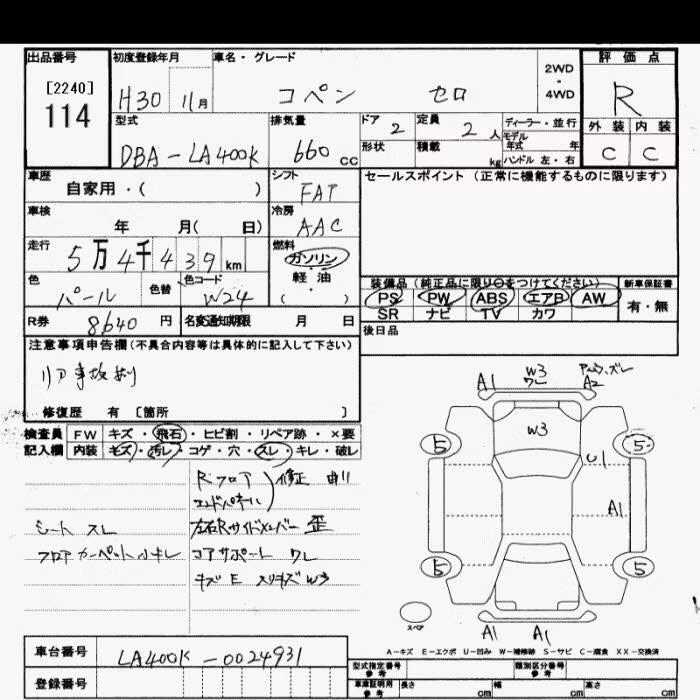 出品番号 初度登録年月 車名・グレード 2WD・4WD 評価点
[2240] 114 H30 11月 コペン セロ R
型式 排気量 ドア 2 定員 2人 ディーラー・並行 外装 内装
DBA-LA400K 660cc 形状 積載 kg モデル年式 年 ハンドル 左・右 C C
車歴 シフト セールスポイント(正常に機能するものに限ります)
自家用・( ) FAT
車検 冷房
年 月( 日) AAC
走行 燃料
5万4千439km ガソリン・軽油
色 色替 色コード ( ) 装備品(純正品に限り○をつけてください) 新車保証書
パール W24 PS PW ABS エアB AW 有・無
R券 8640円 名変通知期限 月 日 SR ナビ TV カワ
注意事項申告欄(不具合内容等は具体的に記入して下さい) 後日品
リア事故あり
修復歴 有 [箇所 ]
検査員 FW キズ・飛石・ヒビ割・リペア跡・×要
記入欄 内装 キズ・汚レ・コゲ・穴・スレ・キレ・破レ
Rフロア 修正 曲り
エンドパネル
シート スレ 左右Rサイドメンバー 歪
フロアカーペット小キレ コアサポート ワレ
キズ E スリキズ W3
W3
A1 ワレ A2
W3
5 5
U1
A1
5 5
スペア
A1 A1
A-キズ E-エクボ U-凹み W-補修跡 S-サビ C-腐食 XX-交換済
車台番号 LA400K-0024931 型式指定番号 参考 類別区分番号 参考
登録番号 車庫証明用 参考 長さ cm 幅 cm 高さ cm